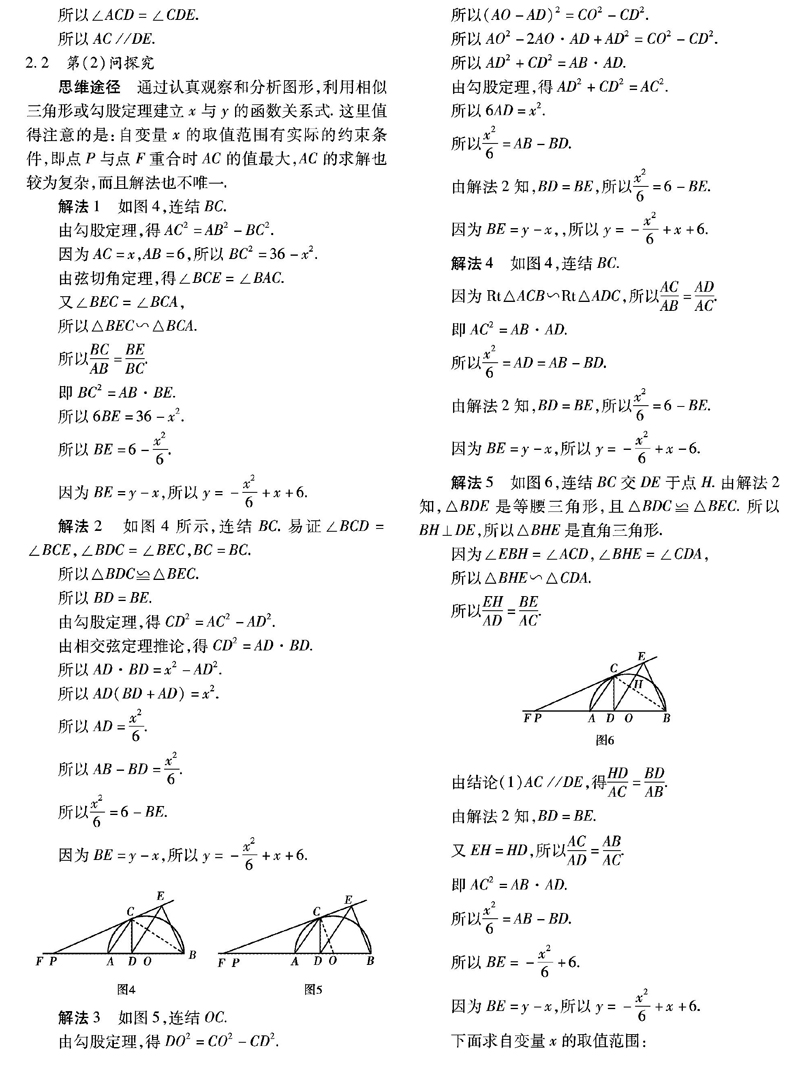 所以∠ACD = ∠CDE.
所以 AC //DE.
2. 2 第(2)问探究
思维途径 通过认真观察和分析图形,利用相似
三角形或勾股定理建立 x 与 y 的函数关系式. 这里值
得注意的是:自变量 x 的取值范围有实际的约束条
件,即点 P 与点 F 重合时 AC 的值最大,AC 的求解也
较为复杂,而且解法也不唯一.
解法 1 如图 4,连结 BC.
由勾股定理,得 AC² = AB² - BC².
因为 AC = x,AB = 6,所以 BC² = 36 - x².
由弦切角定理,得∠BCE = ∠BAC.
又∠BEC = ∠BCA,
所以△BEC∽△BCA.
所以BC/AB = BE/BC.
即 BC² = AB · BE.
所以 6BE = 36 - x².
所以 BE = 6 - x²/6.
因为 BE = y - x,所以 y = - x²/6 + x + 6.
解法 2 如图 4 所示,连结 BC. 易证∠BCD =
∠BCE,∠BDC = ∠BEC,BC = BC.
所以△BDC≌△BEC.
所以 BD = BE.
由勾股定理,得 CD² = AC² - AD².
由相交弦定理推论,得 CD² = AD · BD.
所以 AD · BD = x² - AD².
所以 AD(BD + AD) = x².
所以 AD = x²/6.
所以 AB - BD = x²/6.
所以x²/6 = 6 - BE.
因为 BE = y - x,所以 y = - x²/6 + x + 6.
E
C
F P A D O B
图4
E
C
F P A D O B
图5
解法 3 如图 5,连结 OC.
由勾股定理,得 DO² = CO² - CD².
所以(AO - AD)² = CO² - CD².
所以 AO² - 2AO · AD + AD² = CO² - CD².
所以 AD² + CD² = AB · AD.
由勾股定理,得 AD² + CD² = AC².
所以 6AD = x².
所以x²/6 = AB - BD.
由解法 2 知,BD = BE,所以x²/6 = 6 - BE.
因为 BE = y - x,,所以 y = - x²/6 + x + 6.
解法 4 如图 4,连结 BC.
因为 Rt△ACB∽Rt△ADC,所以AC/AB = AD/AC.
即 AC² = AB · AD.
所以x²/6 = AD = AB - BD.
由解法 2 知,BD = BE,所以x²/6 = 6 - BE.
因为 BE = y - x,所以 y = - x²/6 + x - 6.
解法 5 如图 6,连结 BC 交 DE 于点 H. 由解法 2
知,△BDE 是等腰三角形,且△BDC≌△BEC. 所以
BH⊥DE,所以△BHE 是直角三角形.
因为∠EBH = ∠ACD,∠BHE = ∠CDA,
所以△BHE∽△CDA.
所以EH/AD = BE/AC.
E
C
H
F P A D O B
图6
由结论(1)AC //DE,得HD/AC = BD/AB.
由解法 2 知,BD = BE.
又 EH = HD,所以AC/AD = AB/AC.
即 AC² = AB · AD.
所以x²/6 = AB - BD.
所以 BE = - x²/6 + 6.
因为 BE = y - x,所以 y = - x²/6 + x + 6.
下面求自变量 x 的取值范围: